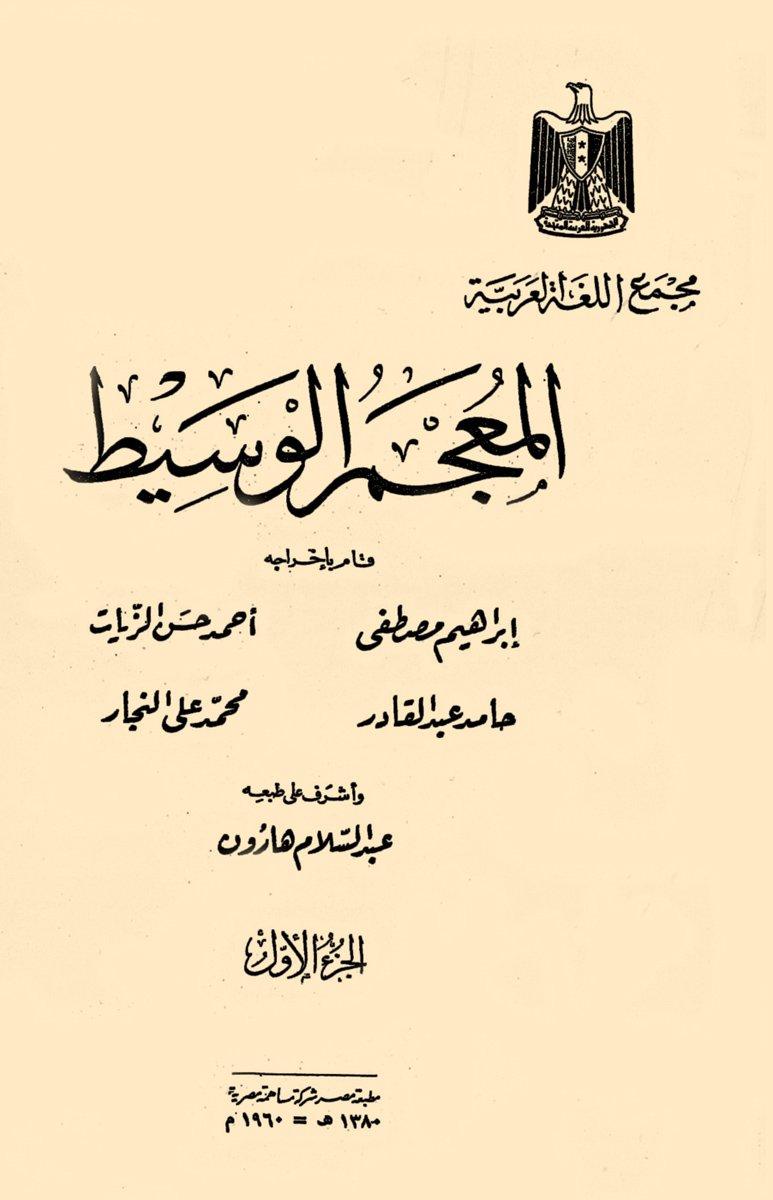 الجمهورية العربية المتحدة
مجمع اللغة العربية
المعجم الوسيط
قام بإخراجه
إبراهيم مصطفى أحمد حسن الزيات
حامد عبد القادر محمد علي النجار
وأشرف على طبعه
عبد السلام هارون
الجزء الأول
مطبعة مصر شركة مساهمة مصرية
١٣٨٠ هـ = ١٩٦٠ م